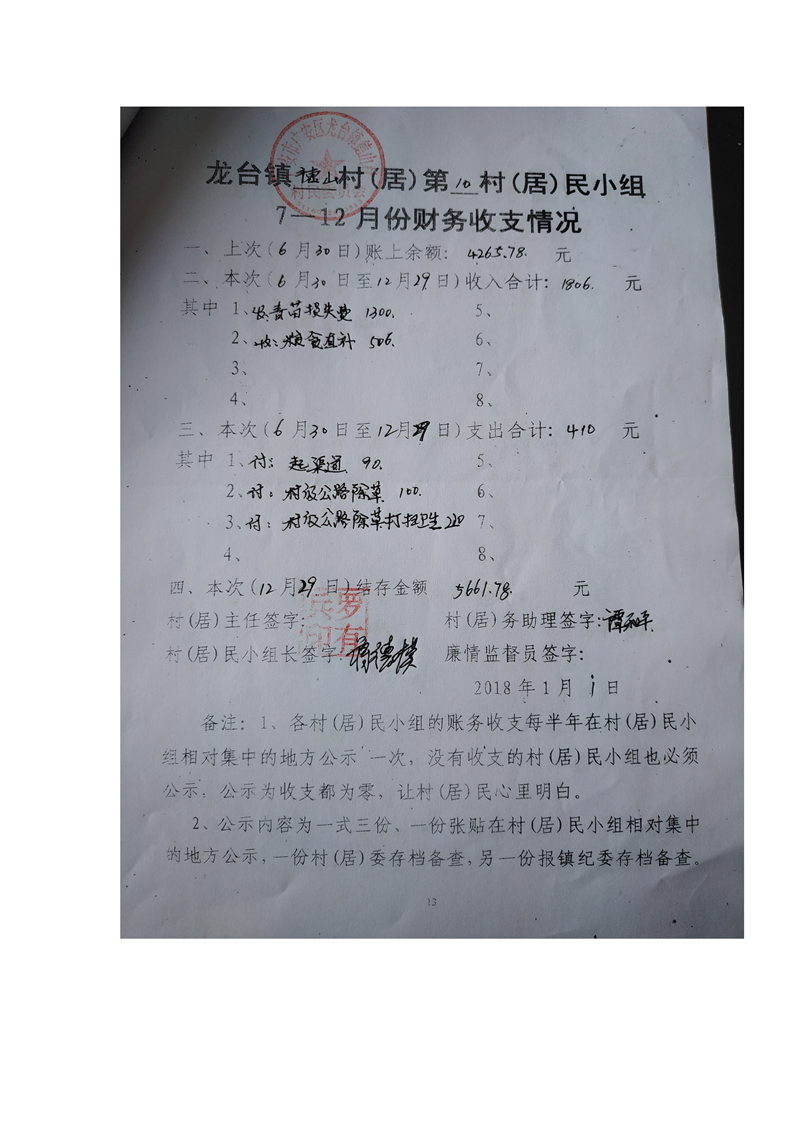 龙台镇 山村(居)第10村(居)民小组
7—12月份财务收支情况
一、上次(6月30日)账上余额: 4265.78. 元
二、本次(6月30日至12月29日)收入合计: 1806. 元
其中 1、收青苗损失费 1300. 5、
2、收:粮食直补 506. 6、
3、 7、
4、 8、
三、本次(6月30日至12月29日)支出合计: 410 元
其中 1、付: 起渠道 90. 5、
2、付: 村级公路除草 100. 6、
3、付: 村级公路除草打扫卫生220 7、
4、 8、
四、本次(12月29日)结存金额 5661.78. 元
村(居)主任签字: 罗有兵印 村(居)务助理签字:谭
村(居)民小组长签字: 廉情监督员签字:
2018年1月1日
备注: 1、各村(居)民小组的账务收支每半年在村(居)民小
组相对集中的地方公示一次, 没有收支的村(居)民小组也必须
公示, 公示为收支都为零, 让村(居)民心里明白。
2、公示内容为一式三份、一份张贴在村(居)民小组相对集中
的地方公示, 一份村(居)委存档备查, 另一份报镇纪委存档备查。
13